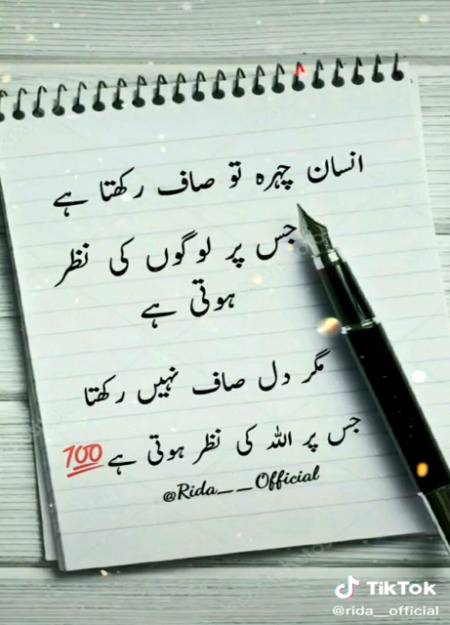 انسان چہرہ تو صاف رکھتا ہے
جس پر لوگوں کی نظر
ہوتی ہے
مگر دل صاف نہیں رکھتا
جس پر اللہ کی نظر ہوتی ہے 💯
@Rida__Official
TikTok
@rida__official